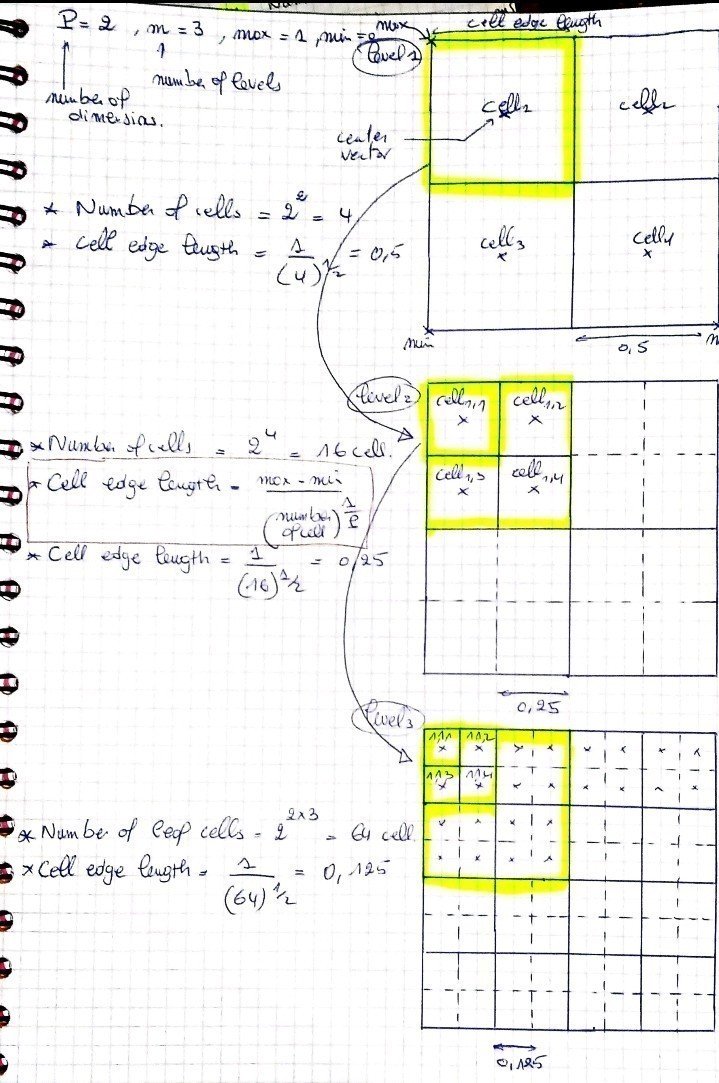 P = 2 , m = 3 , max = 1 , min = 0
number of dimensions.
number of levels
max
cell edge length
level 1
cell1
cell2
center vector
* Number of cells = 2^2 = 4
* cell edge length = 1/(4)^1/2 = 0,5
cell3
cell4
min
0,5
level 2
cell1,1
cell1,2
* Number of cells = 2^4 = 16 cell.
cell1,3
cell1,4
* Cell edge length = max - min / (number of cell)^1/P
* Cell edge length = 1/(16)^1/2 = 0,25
0,25
level 3
1,1,1
1,1,2
1,1,3
1,1,4
* Number of leaf cells = 2^2x3 = 64 cell.
* Cell edge length = 1/(64)^1/2 = 0,125
0,125